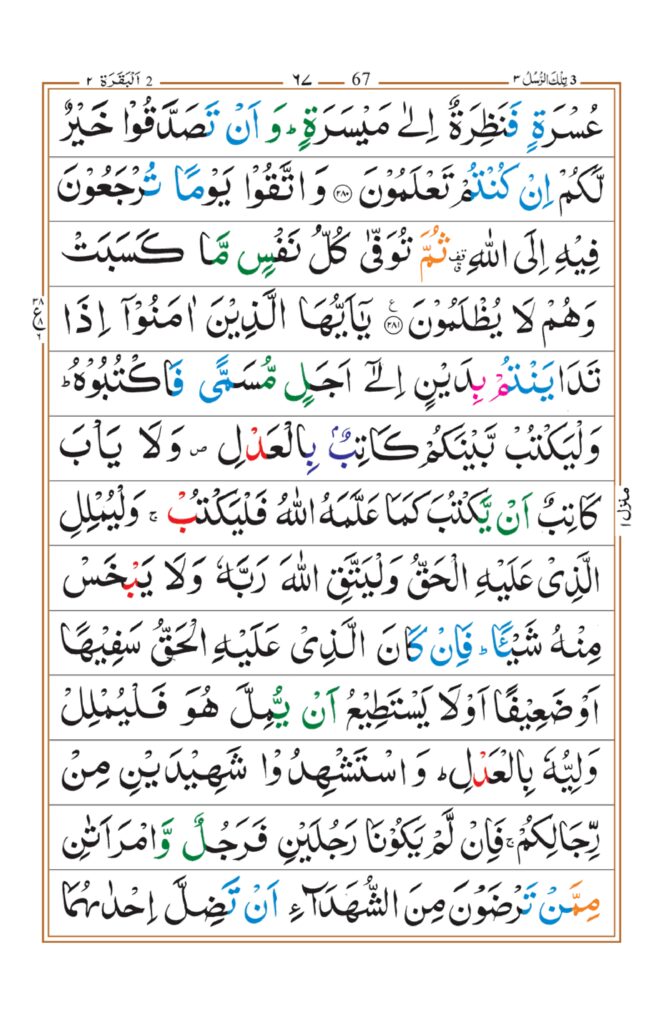 3 تِلْكَ الرُّسُلُ ٣ 67 ٦٧ 2 اَلْبَقَرَة ٢
عُسْرَةٍ فَنَظِرَةٌ اِلٰى مَيْسَرَةٍ ؕ وَ اَنْ تَصَدَّقُوْا خَيْرٌ
لَّكُمْ اِنْ كُنْتُمْ تَعْلَمُوْنَ ﴿۲۸۰﴾ وَ اتَّقُوْا يَوْمًا تُرْجَعُوْنَ
فِيْهِ اِلَى اللّٰهِ ثُمَّ تُوَفّٰى كُلُّ نَفْسٍ مَّا كَسَبَتْ
وَهُمْ لَا يُظْلَمُوْنَ ﴿۲۸۱﴾ يٰۤاَيُّهَا الَّذِيْنَ اٰمَنُوْۤا اِذَا
تَدَايَنْتُمْ بِدَيْنٍ اِلٰۤى اَجَلٍ مُّسَمًّى فَاكْتُبُوْهُ ؕ
وَلْيَكْتُبْ بَّيْنَكُمْ كَاتِبٌۢ بِالْعَدْلِ ۪ وَلَا يَاْبَ
كَاتِبٌ اَنْ يَّكْتُبَ كَمَا عَلَّمَهُ اللّٰهُ فَلْيَكْتُبْ ۚ وَلْيُمْلِلِ
الَّذِىْ عَلَيْهِ الْحَقُّ وَلْيَتَّقِ اللّٰهَ رَبَّهٗ وَلَا يَبْخَسْ
مِنْهُ شَيْـًٔا ؕ فَاِنْ كَانَ الَّذِىْ عَلَيْهِ الْحَقُّ سَفِيْهًا
اَوْ ضَعِيْفًا اَوْ لَا يَسْتَطِيْعُ اَنْ يُّمِلَّ هُوَ فَلْيُمْلِلْ
وَلِيُّهٗ بِالْعَدْلِ ؕ وَ اسْتَشْهِدُوْا شَهِيْدَيْنِ مِنْ
رِّجَالِكُمْ ۚ فَاِنْ لَّمْ يَكُوْنَا رَجُلَيْنِ فَرَجُلٌ وَّامْرَاَتٰنِ
مِمَّنْ تَرْضَوْنَ مِنَ الشُّهَدَآءِ اَنْ تَضِلَّ اِحْدٰٮهُمَا
منزل ١